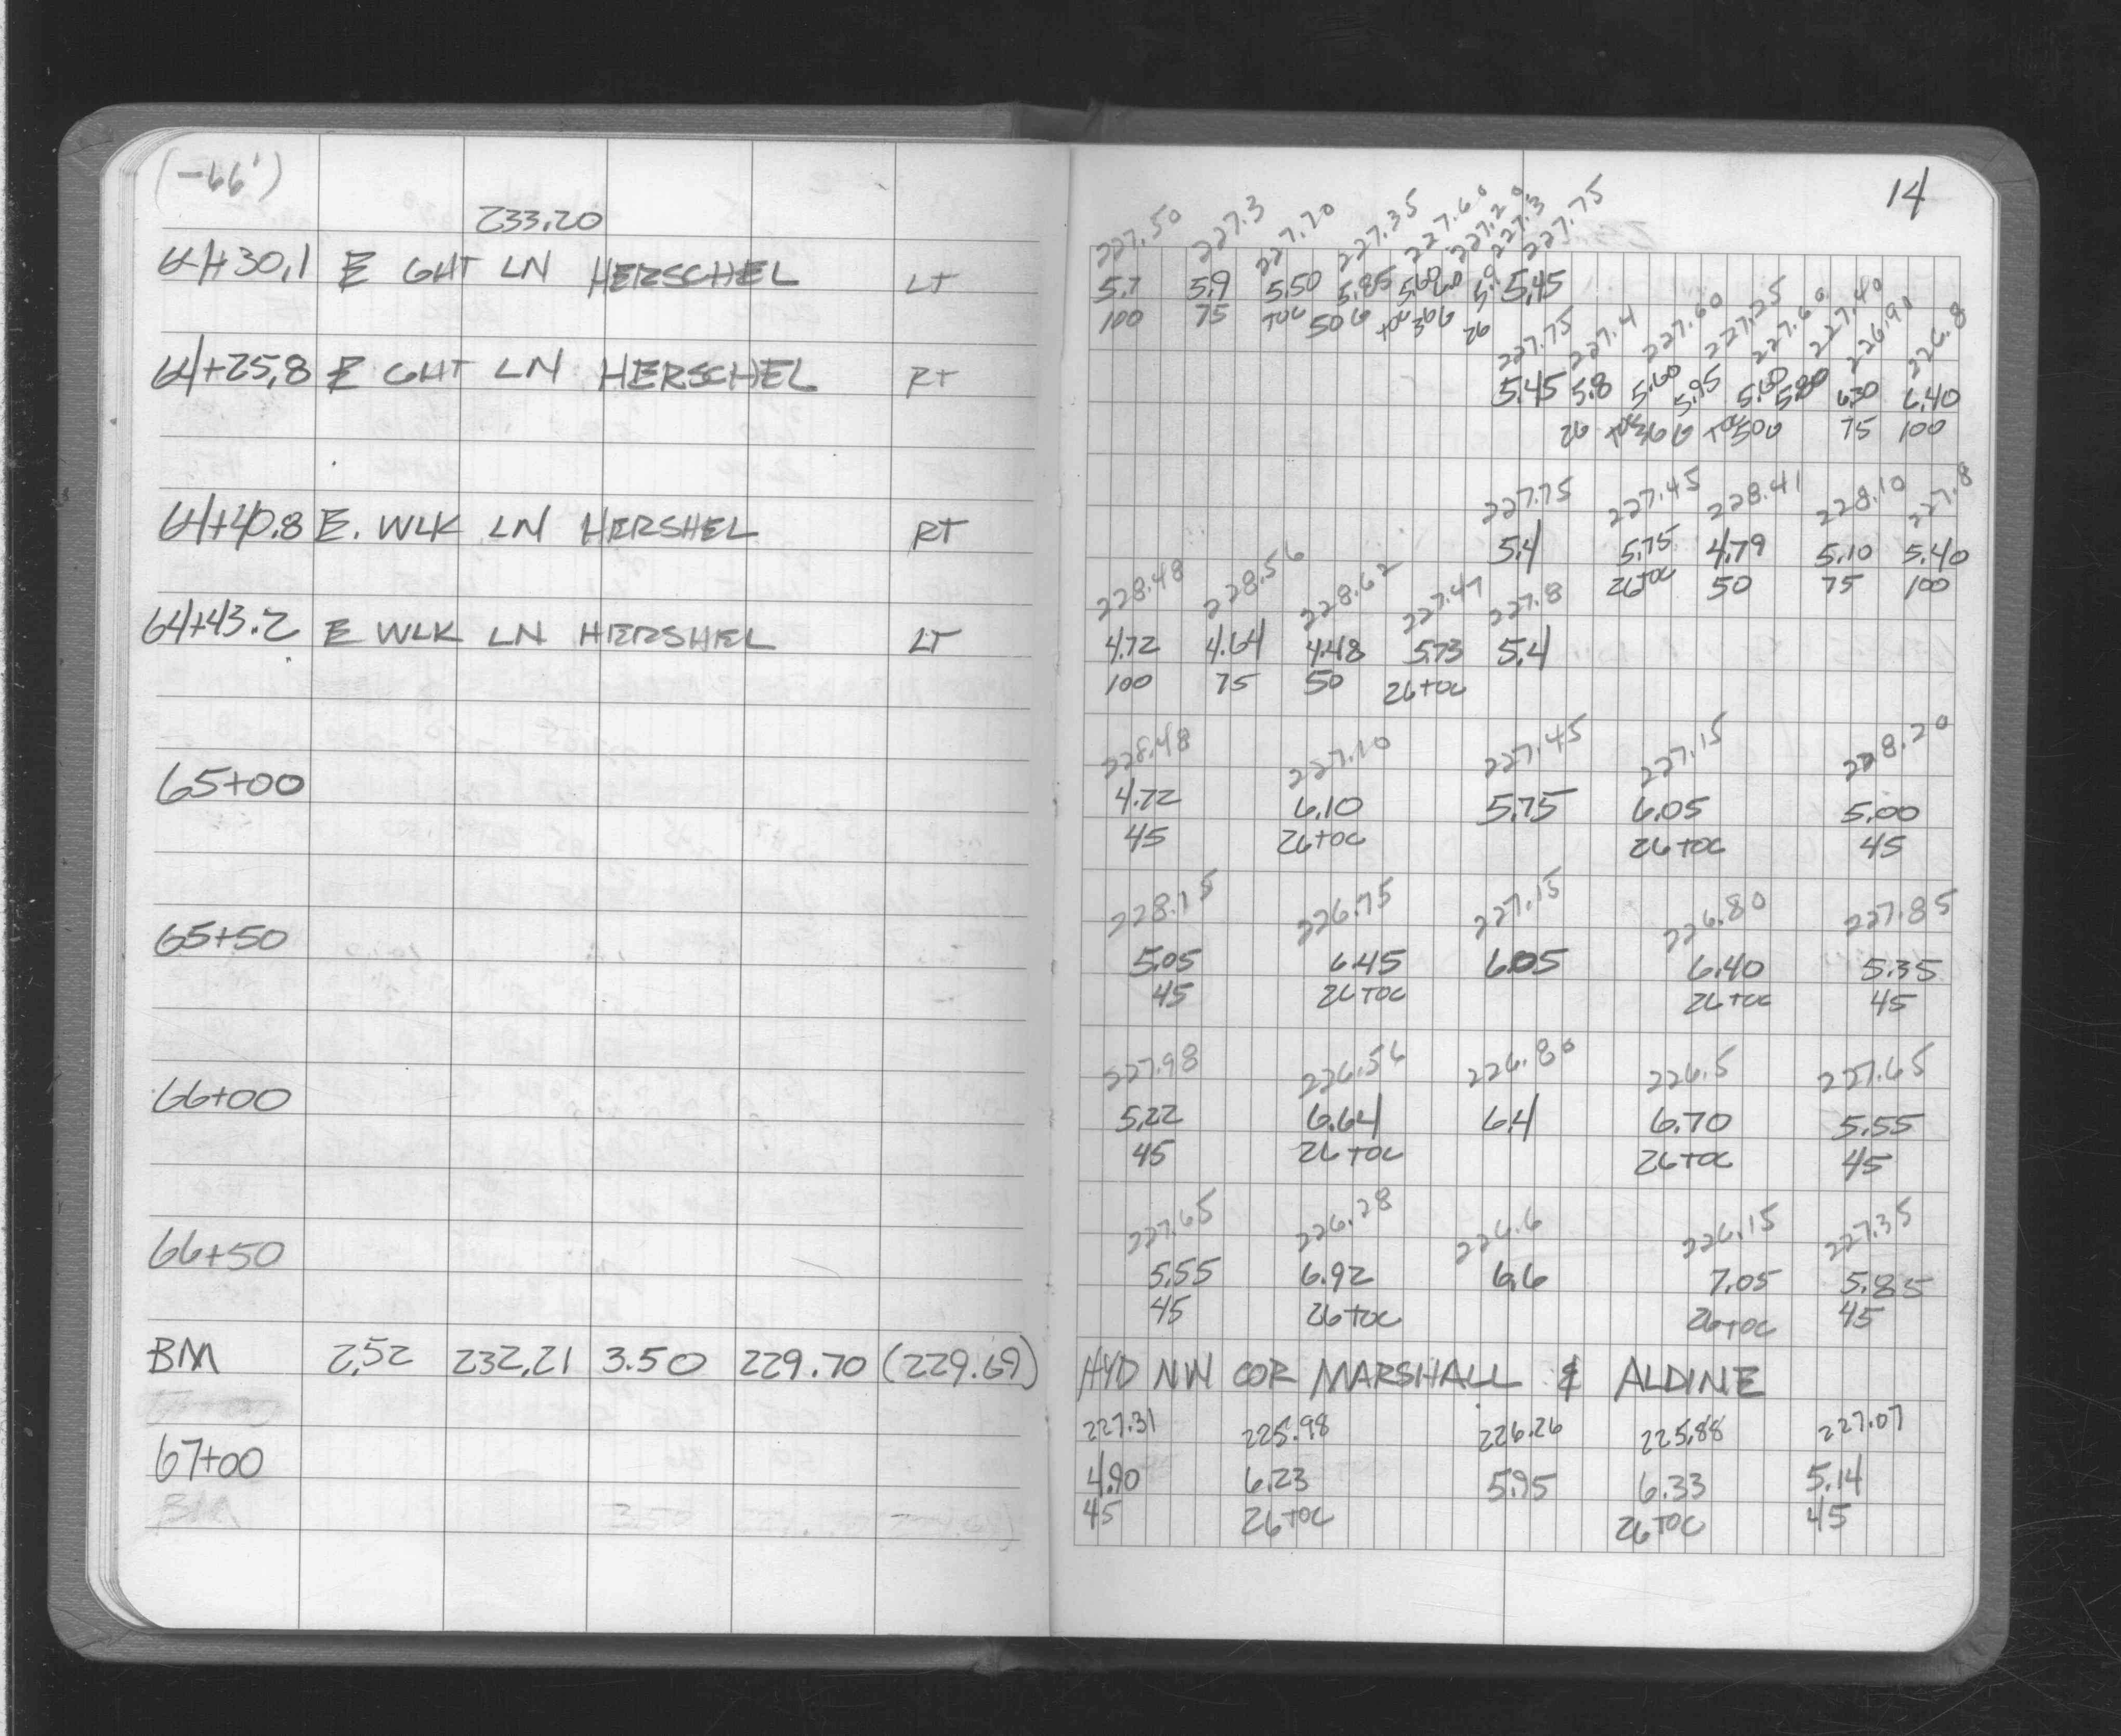 (-66')
14
233.20
227.50 227.3 227.70 227.35 227.60 227.20 227.3 227.75
64+30.1 E GUT LN HERSCHEL LT
5.7 5.9 5.50 5.85 5.60 5.45
100 75 TOC 50G TOC 36G 26
227.75 227.4 227.60 227.25 227.60 227.40 226.90 226.8
64+25.8 E GUT LN HERSCHEL RT
5.45 5.8 5.60 5.95 5.60 5.80 6.30 6.40
26 TOC 36G TOC 50G 75 100
227.75 227.45 228.41 228.10 227.8
64+40.8 E. WLK LN HERSHEL RT
5.4 5.75 4.79 5.10 5.40
26TOC 50 75 100
228.48 228.56 228.62 227.47 227.8
64+43.2 E WLK LN HERSHEL LT
4.72 4.64 4.48 5.73 5.4
100 75 50 26TOC
228.48 227.10 227.45 227.15 228.20
65+00
4.72 6.10 5.75 6.05 5.00
45 26TOC 26TOC 45
228.15 226.75 227.15 226.80 227.85
65+50
5.05 6.45 6.05 6.40 5.35
45 26TOC 26TOC 45
227.98 226.56 226.80 226.5 227.65
66+00
5.22 6.64 6.4 6.70 5.55
45 26TOC 26TOC 45
227.65 226.28 226.6 226.15 227.35
66+50
5.55 6.92 6.6 7.05 5.85
45 26TOC 26TOC 45
BM 2.52 232.21 3.50 229.70 (229.69) HYD NW COR MARSHALL & ALDINE
227.31 225.98 226.26 225.88 227.07
67+00
4.90 6.23 5.95 6.33 5.14
45 26TOC 26TOC 45
BM 3.50